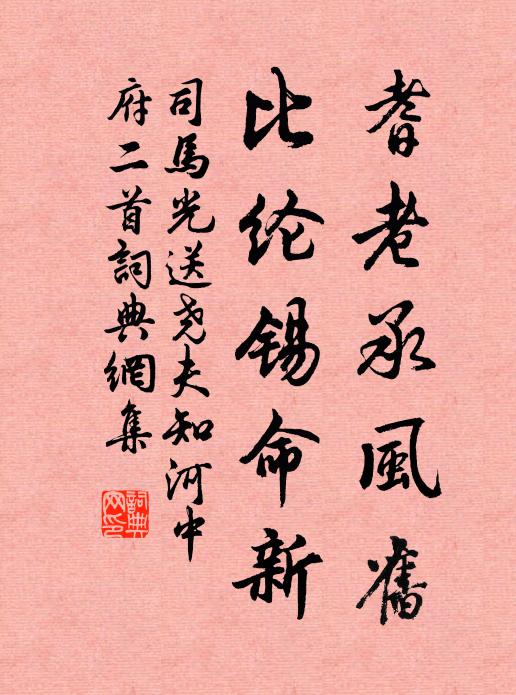 耆老承風舊
比纶锡命新
司馬光送尧夫知河中
府二首詞典網集
詞典网印